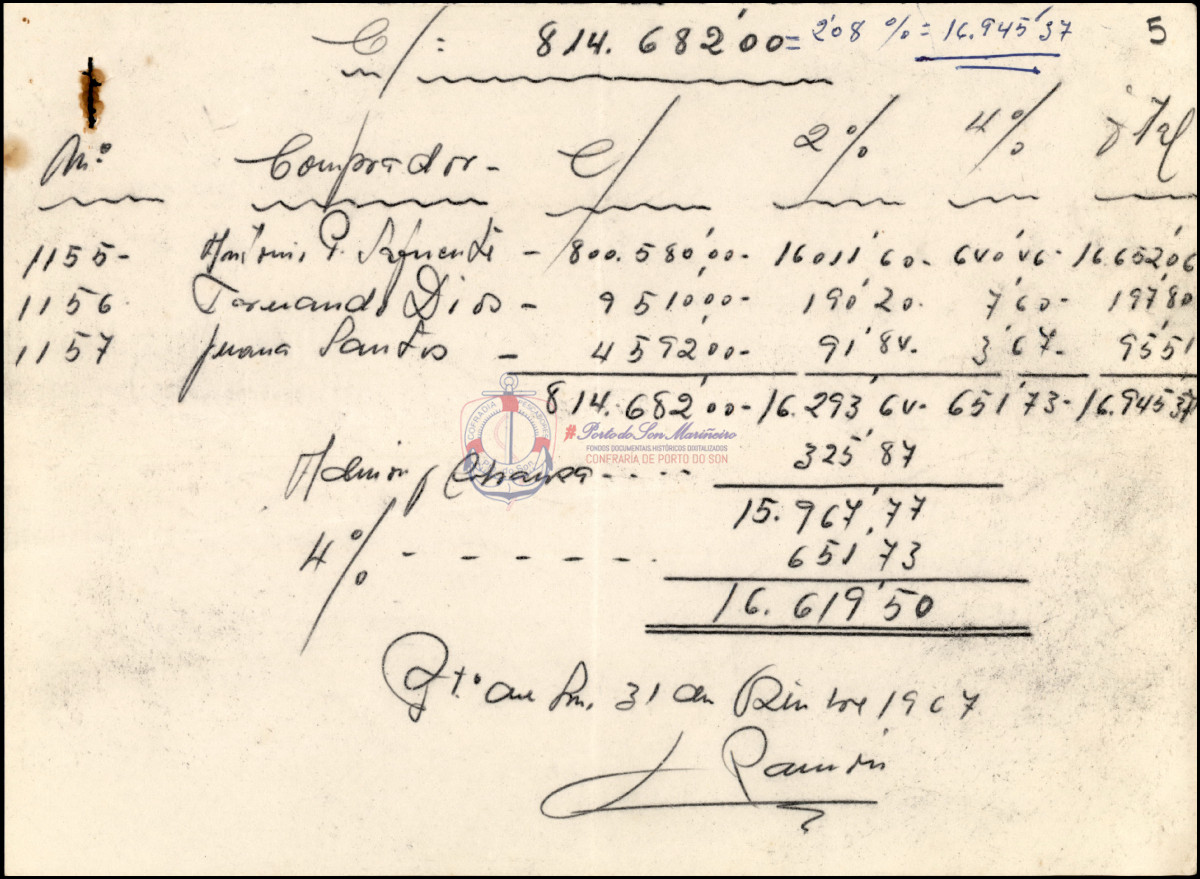 C/: 814.682'00= 2'08 % = 16.945'37 5
Nº Comprador- C/ 2% 4% Total
1155- Antonio P. Lafuente - 800.580'00- 16011'60- 640'46- 16.652'06
1156 Fernando Dios - 9510'00- 190'20- 7'60- 197'80
1157 Juana Santos - 4592'00- 91'84- 3'67- 95'51
814.682'00- 16.293'64- 651'73- 16.945'37
COFRADIA PESCADORES
Porto do Son
#Porto do Son Mariñeiro
FONDOS DOCUMENTAIS HISTÓRICOS DIXITALIZADOS
CONFRARÍA DE PORTO DO SON
Admón y Cobranza - - - - 325'87
15.967'77
4% - - - - - - 651'73
16.619'50
Pto de Son, 31 de 1967
Ramón